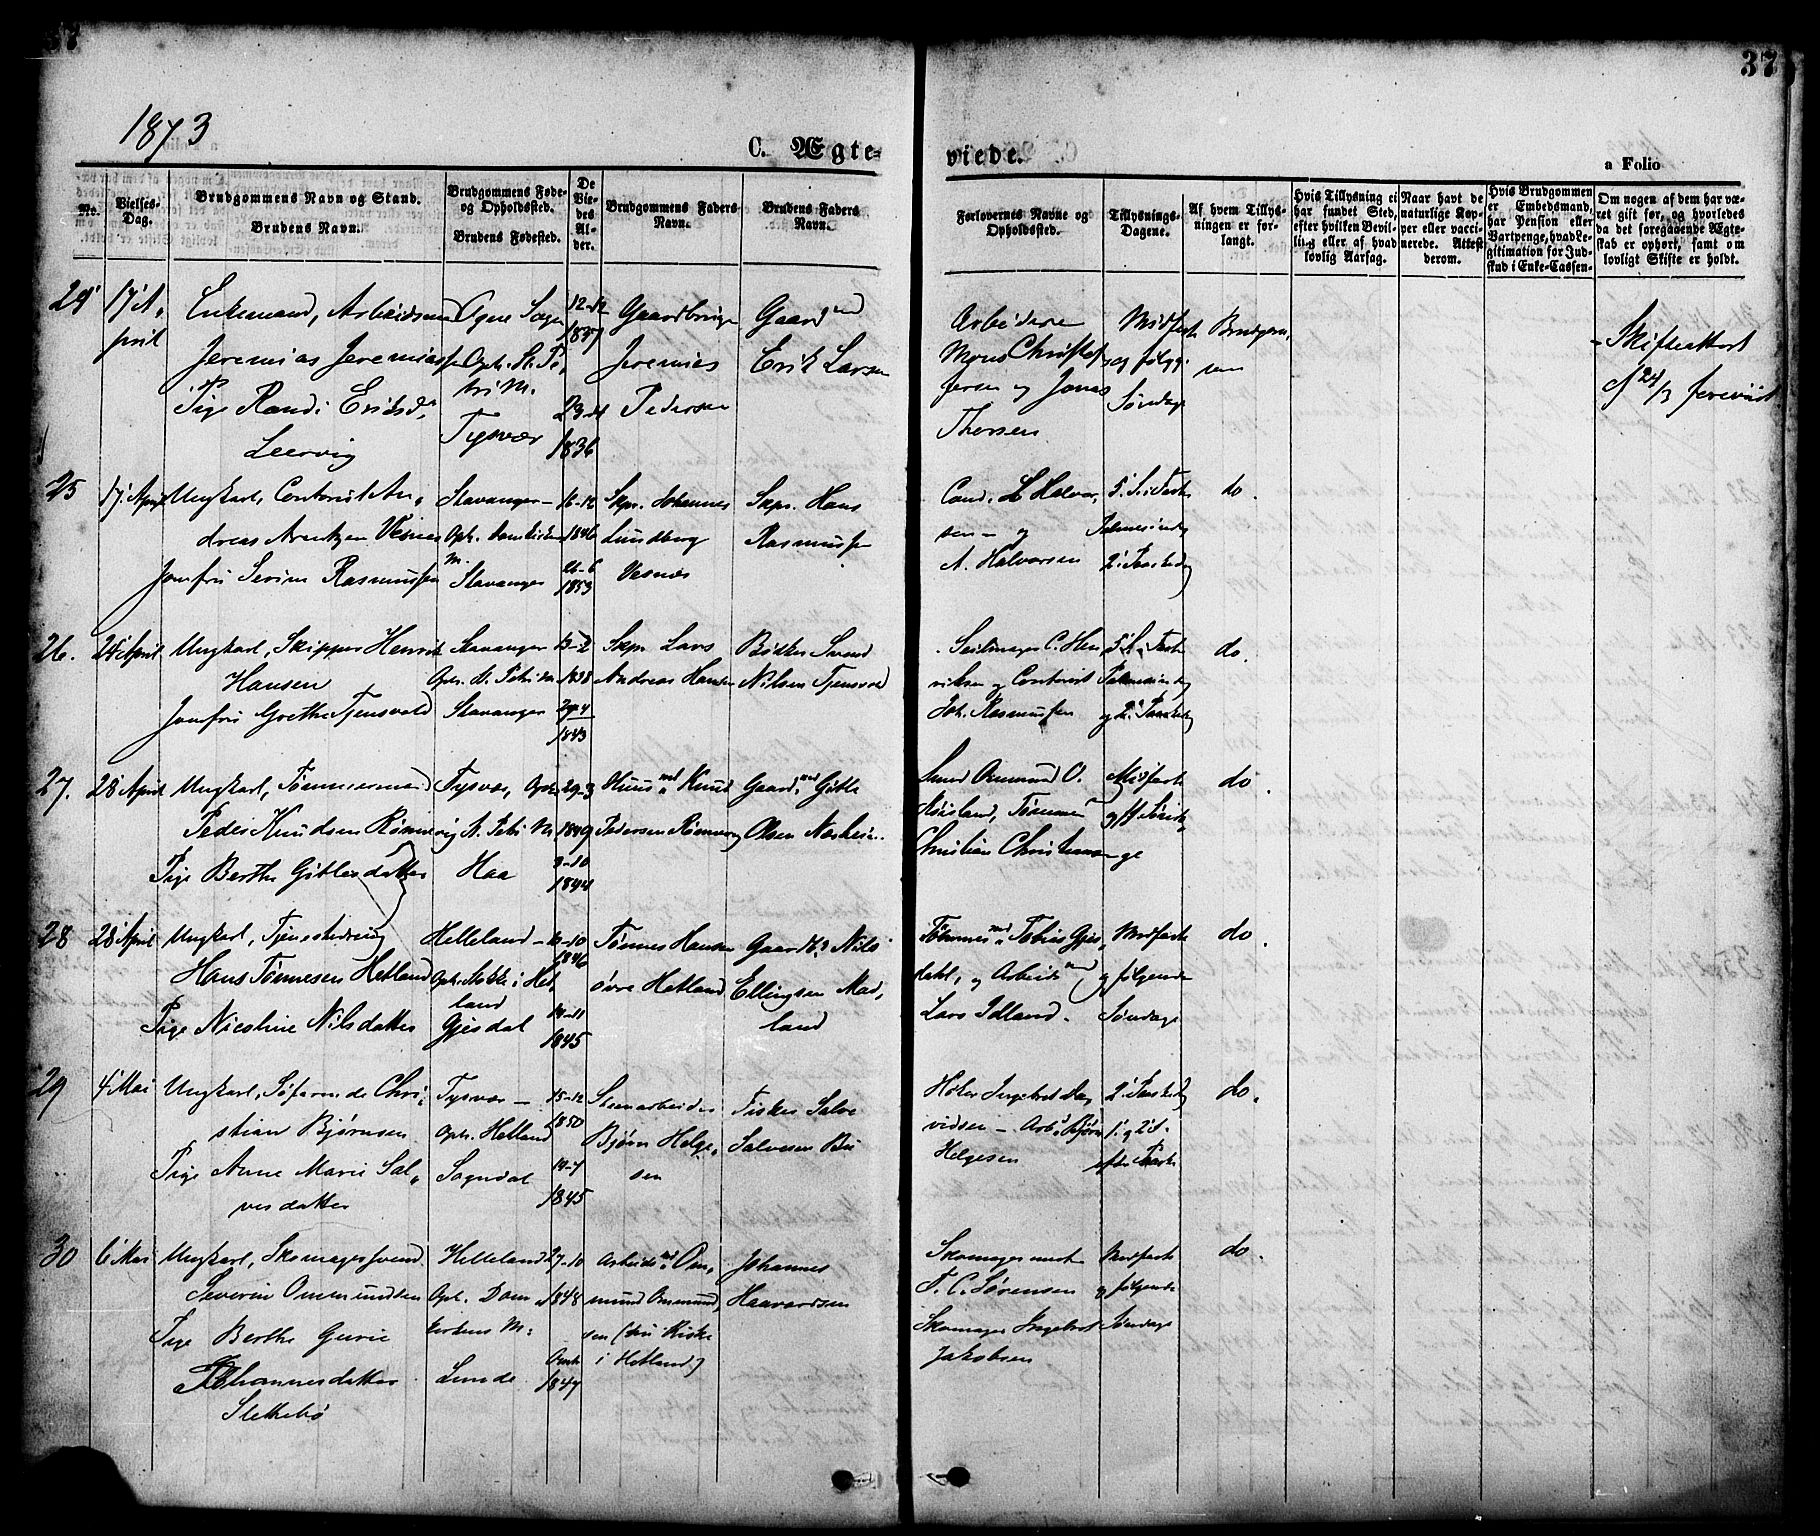 37
37
1873
C. Ægte-
viede.
a Folio
No.
Vielses-
Dag.
Brudgommens Navn og Stand.
Brudens Navn.
Brudgommens Føde-
og Opholdssted.
Brudens Fødested.
De
Vie-
des
Al-
der.
Brudgommens Faders
Navn.
Brudens Faders
Navn.
Forlovernes Navne og
Opholdssted.
Tillysnings-
Dagene.
Af hvem Tillys-
ningen er for-
langt.
Hvis Tillysning ei
har fundet Sted,
efter hvilken Bevil-
ling eller af hvad
lovlig Aarsag.
Naar havt de
naturlige Kop-
per eller vacci-
nerede. Attest
derom.
Hvis Brudgommen
er Embedsmand,
har Pension eller
Vartpenge, hvad Le-
gitimation for Ind-
skud i Enke-Cassen.
Om nogen af dem har væ-
ret gift før, og hvorledes
da det foregaaende Ægte-
skab er ophørt, samt om
lovligt Skifte er holdt.
24
17 A-
pril
Enkemand, Arbeidsm
Jeremias Jeremiassen
Pige Randi Eriksd.
Leervig
Ogne Sogn
Oph. St. Pe-
tri M.
Tysvær
12-12
1837
23-4
1836
Gaardbruger
Jeremias
Pedersen
Gaardmd
Erik Larsen
Arbeiderne
Mons Christof-
fersen og Jonas
Thorsen
Midfaste
og følgg.
Søndage
Brudgom-
men
Skifteattest
af 24/3 foreviist
25
17 April
Ungkarl, Contorist An-
dreas Arentzen Vesnes
Jomfru Sevine Rasmussen
Stavanger
Oph. Domkirken
M.
Stavanger
16-12
1846
26-6
1853
Skpr. Johannes
Lundberg
Vesnes
Skpr. Hans
Rasmussen
Cand. L. Halvor-
sen og
A. Halvorsen
5. S. i Faste
Palmesøndag
2. Paaskedag
do.
26.
24 April
Ungkarl, Skipper Henrik
Hansen
Jomfru Grethe Tjensvold
Stavanger
Oph. St. Petri M.
Stavanger
13-2
1838
29-4
1843
Skpr. Lars
Andreas Hansen
Bødker Svend
Nilsen Tjensvold
Seilmager C. Hen-
riksen og Contorist
Joh. Rasmussen
5 S. i Faste
Palmesøndag
og 2. Paaskedag
do.
27.
28 April
Ungkarl, Tømmermand
Peder Knudsen Rønnevig
Pige Berthe Gitlesdatter
Tysvær, Oph.
St. Petri M.
Haa
29-3
1849
9-10
1844
Huusmd Knud
Pedersen Rønnevig
Gaardmd Gitle
Olsen Nærheim
Smed Osmund O.
Høisland, Tømmermd
Christian Christensen
Midfaste
og ff Sønda-
ge
do.
28
28 April
Ungkarl, Tjenestedreng
Hans Tønnesen Hetland
Pige Nicoline Nilsdatter
Helleland
Oph. Stokke i Het-
land
Gjesdal
10-10
1846
14-11
1845
Tønnes Hansen
øvre Hetland
Gaardbr. Nils
Ellingsen Mad-
land
Tømmermd Tobias Gjes-
dahl, og Arbeidsmd
Lars Idland.
Midfaste
og følgende
Søndage
do.
29
4 Mai
Ungkarl, Søfarende Chri-
stian Bjørnsen
Pige Anne Marie Sal-
vesdatter
Tysvær
Oph. Hetland
Sogndal
15-12
1850
14-7
1845
Steenarbeider
Bjørn Helge-
sen
Fisker Salve
Salvesen Bu
Høker Ingebret Da-
vidsen - Arb. Bjørn
Helgesen
2. Paaskedag
1. og 2. S.
efter Paaske
do.
30
6 Mai
Ungkarl, Skomagersvend
Severin Ommundsen
Pige Berthe Gurie
Johannesdatter
Slettebø
Helleland
Oph. Dom-
kirkens M.
Lunde
27-10
1848
1847
Arbeidsmd Om-
mund Ommund-
sen (
i Hetland)
Johannes
Haavardsen
Skomagermest
T. C. Sørensen
Skomager Ingebret
Jakobsen
Midfaste
og følgende
Søndage
do.